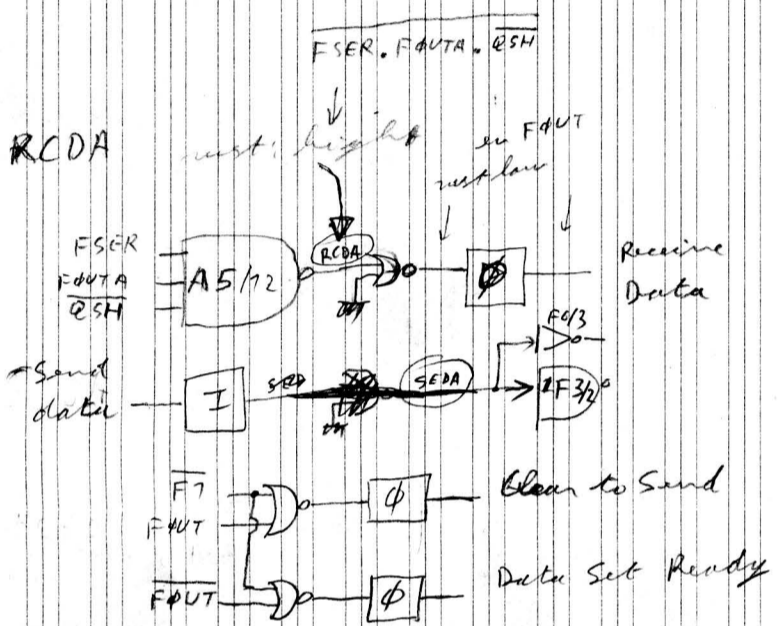 FSER . FØUTA . Q̅S̅H̅
RCDA
rest: high
in FØUT
rest low
FSER
FØUTA
Q̅S̅H̅
A5/12
RCDA
Ø
Receive
Data
F6/3
Send
data
I
SEDA
F3/2
F̅7̅
FØUT
Ø
Clear to Send
F̅Ø̅U̅T̅
Ø
Data Set Ready